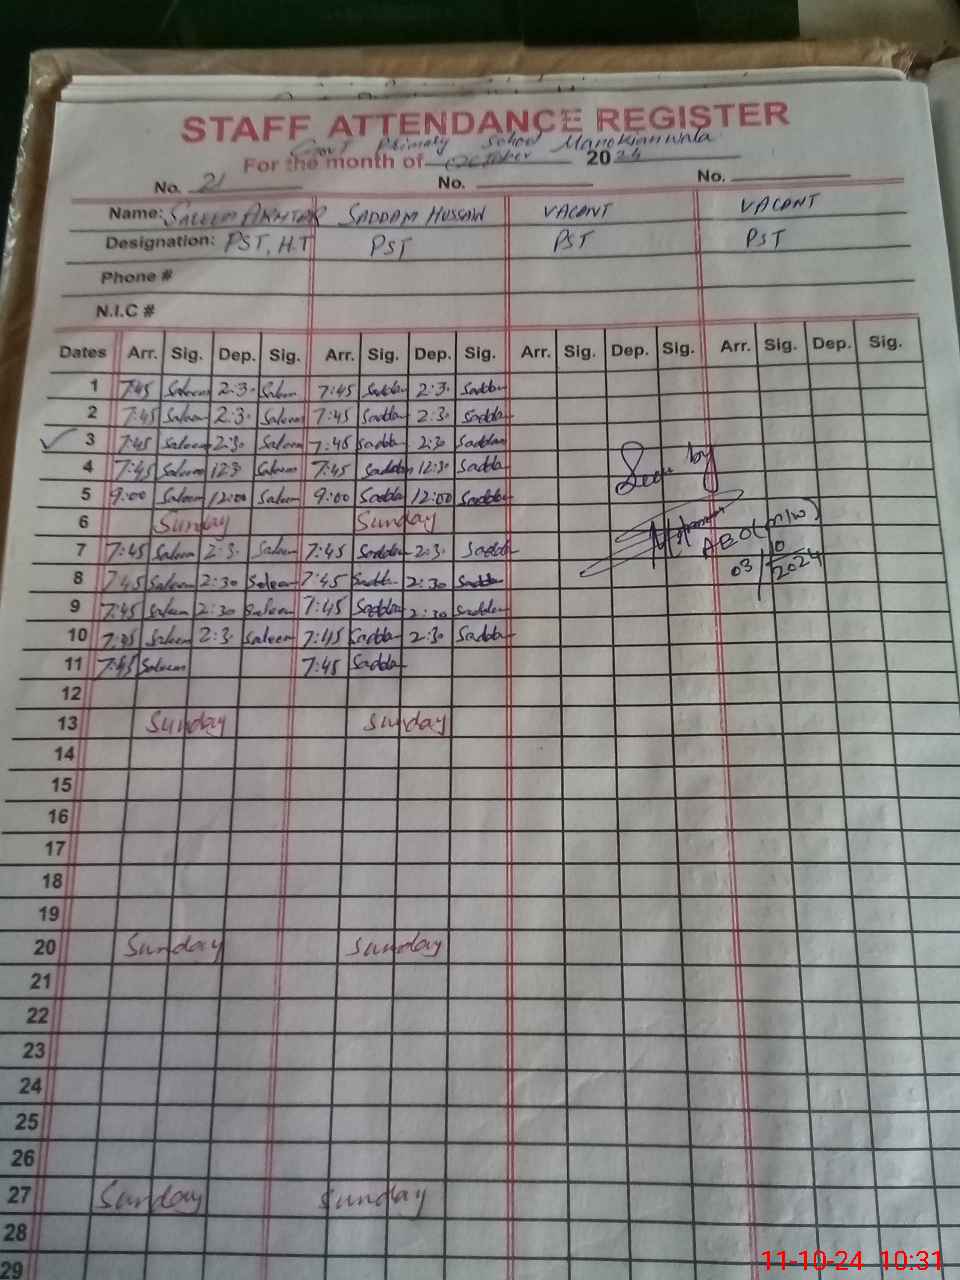 STAFF ATTENDANCE REGISTER
Govt Primary School Manokianwala
For the month of October 2024
No. 21 No. No.
Name: SALEEM AKHTAR SADDAM HUSSAIN VACANT VACANT
Designation: PST, H.T PST PST PST
Phone #
N.I.C #
Dates Arr. Sig. Dep. Sig. Arr. Sig. Dep. Sig. Arr. Sig. Dep. Sig. Arr. Sig. Dep. Sig.
1 7:45 Saleem 2:3. Saleem 7:45 Sadda 2:3. Sadda
2 7:45 Saleem 2:3. Saleem 7:45 Sadda 2:30 Sadda
3 7:45 Saleem 2:30 Saleem 7:45 Sadda 2:30 Saddam
4 7:45 Saleem 12:3 Saleem 7:45 Saddam 12:30 Sadda
5 9:00 Saleem 12:00 Saleem 9:00 Sadda 12:00 Sadda
6 Sunday Sunday
7 7:45 Saleem 2:3. Saleem 7:45 Saddam 2:3. Sadda
8 7:45 Saleem 2:30 Saleem 7:45 Sadda 2:30 Sadda
9 7:45 Saleem 2:30 Saleem 7:45 Sadda 2:30 Saddam
10 7:45 Saleem 2:3. Saleem 7:45 Sadda 2:30 Sadda
11 7:45 Saleem 7:45 Sadda
12
13 Sunday Sunday
14
15
16
17
18
19
20 Sunday Sunday
21
22
23
24
25
26
27 Sunday Sunday
28
29
Seen by
AEO (M/W)
03/10/2024
11-10-24 10:31